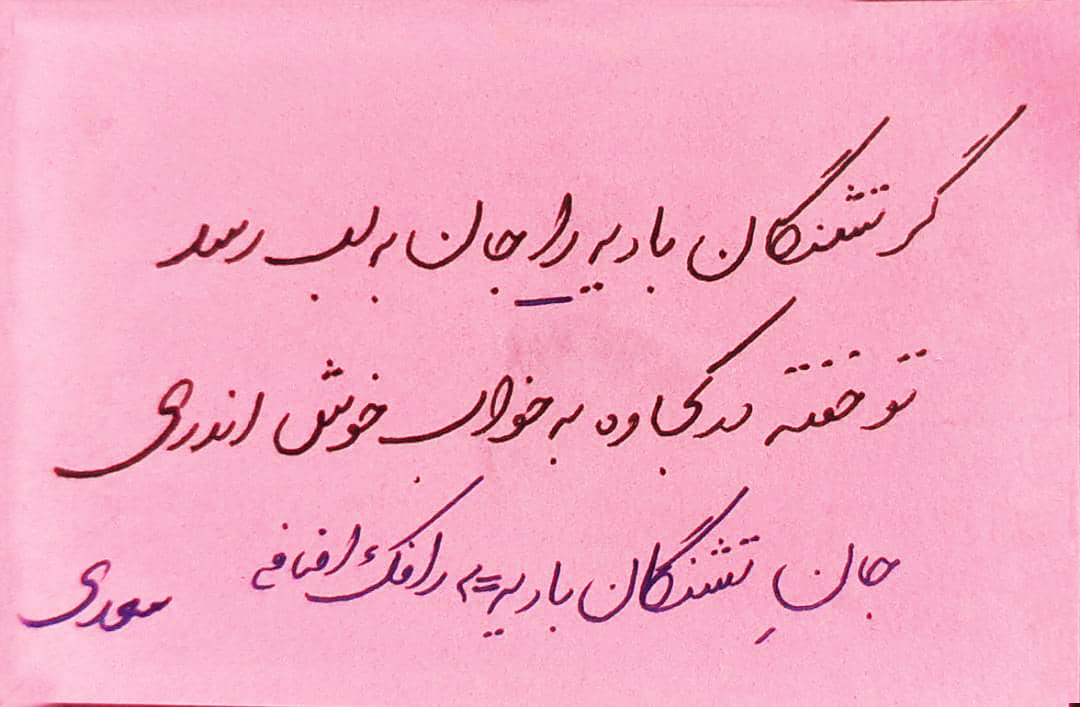 گر تشنگان بادیه را جان به لب رسد
تو خفته در کجاوه به خواب خوش اندری
جانِ تشنگان بادیه = را فک اضافه
سعدی